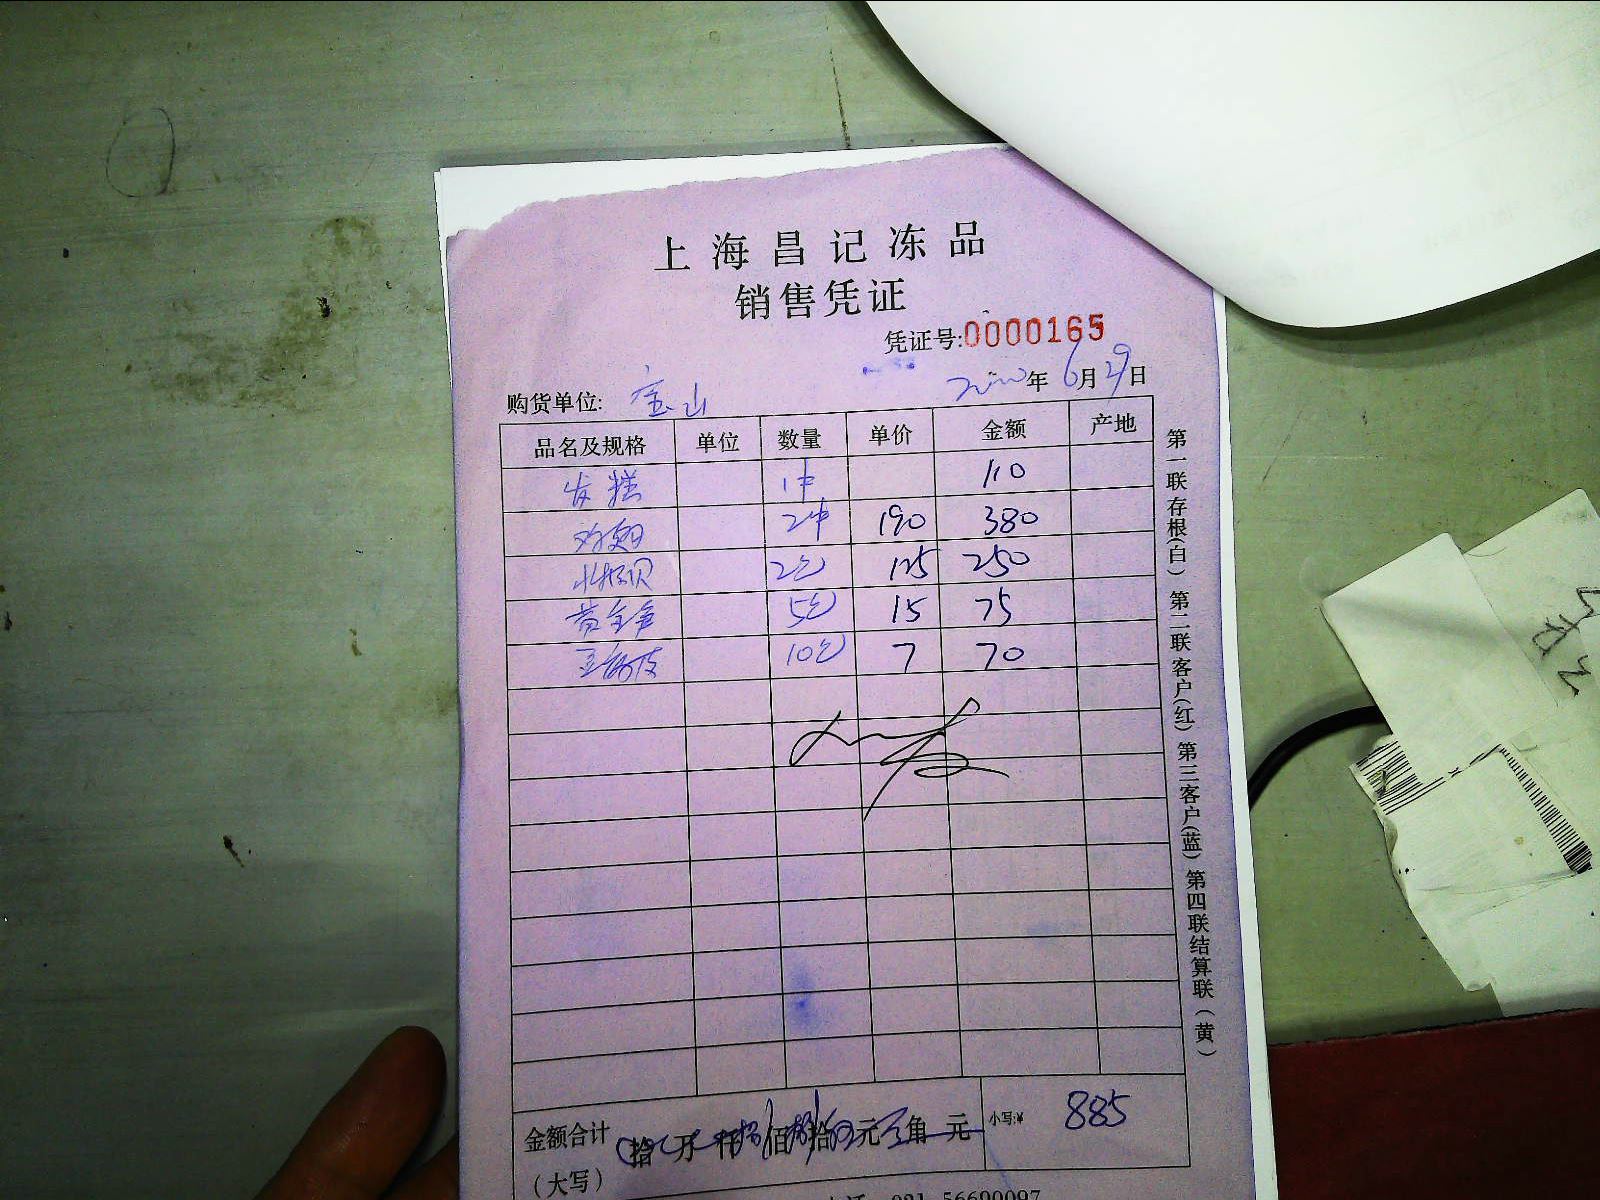 上海昌记冻品
销售凭证
凭证号:0000165
年 6月29日
购货单位: 宝山
品名及规格 单位 数量 单价 金额 产地
发糕 1件 110
鸡翅 2件 190 380
2包 125 250
黄金 5包 15 75
豆腐皮 10包 7 70
金额合计 拾 万 仟 佰 拾 元 角 元 小写:¥ 885
(大写)
电话 021-56690097
第一联存根(白) 第二联客户(红) 第三客户(蓝) 第四联结算联(黄)